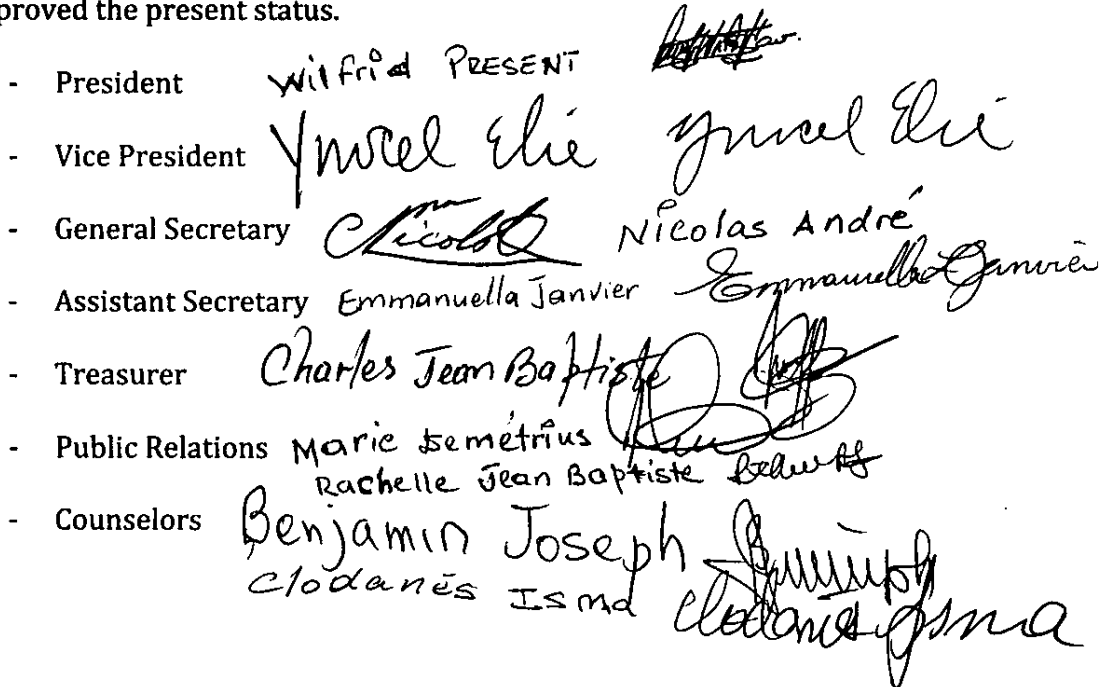 proved the present status.
- President Wilfrid PRESENT
- Vice President Ynvcel Elie Ynvcel Elie
- General Secretary Nicolas André
- Assistant Secretary Emmanuella Janvier Emmanuella Janvier
- Treasurer Charles Jean Baptiste
- Public Relations Marie Demétrius
Rachelle Jean Baptiste
- Counselors Benjamin Joseph
Clodanès Isma Clodanès Isma